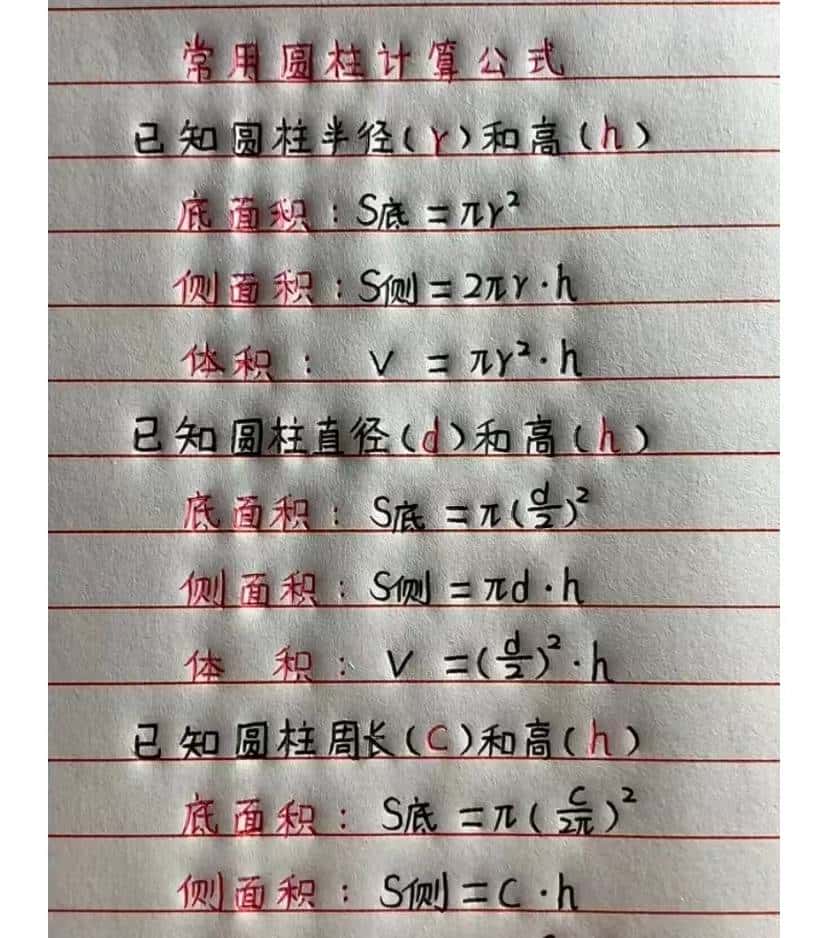 常用圆柱计算公式
已知圆柱半径(r)和高(h)
底面积：S底=πr²
侧面积：S侧=2πr·h
体积： V =πr²·h
已知圆柱直径(d)和高(h)
底面积：S底=π(d/2)²
侧面积：S侧=πd·h
体 积：V =(d/2)²·h
已知圆柱周长(C)和高(h)
底面积：S底=π(C/2π)²
侧面积：S侧=C·h